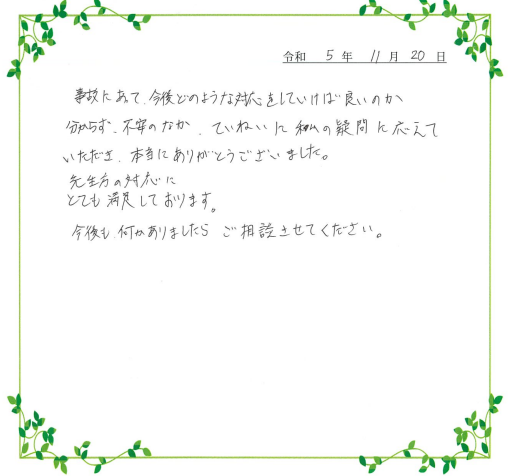 令和 5 年 11 月 20 日
事故にあって、今後どのような対応をしていけば良いのか
分からず、不安のなか、ていねいに私の疑問に応えて
いただき、本当にありがとうございました。
先生方の対応に
とても満足しております。
今後も、何かありましたら ご相談させてください。